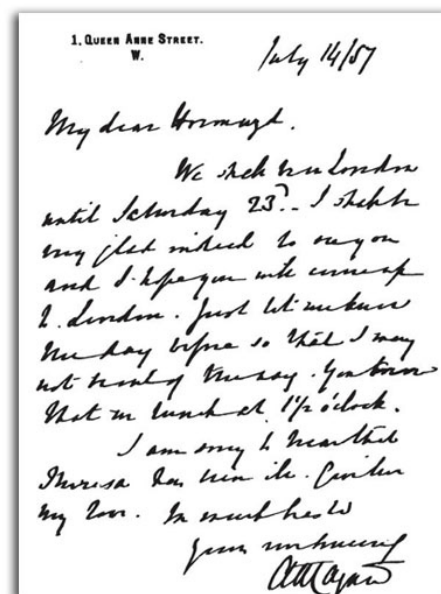 1, QUEEN ANNE STREET.
W.
July 14/57
My dear
We shall London
until Saturday 23 I shall be
very glad indeed to see you
and I hope you will come up
to London. Just let me know
the day before so that I may
not the way. You know
that we lunch at 1½ o'clock.
I am sorry to hear that
Theresa has been ill. Give her
my love. In much haste
Yours